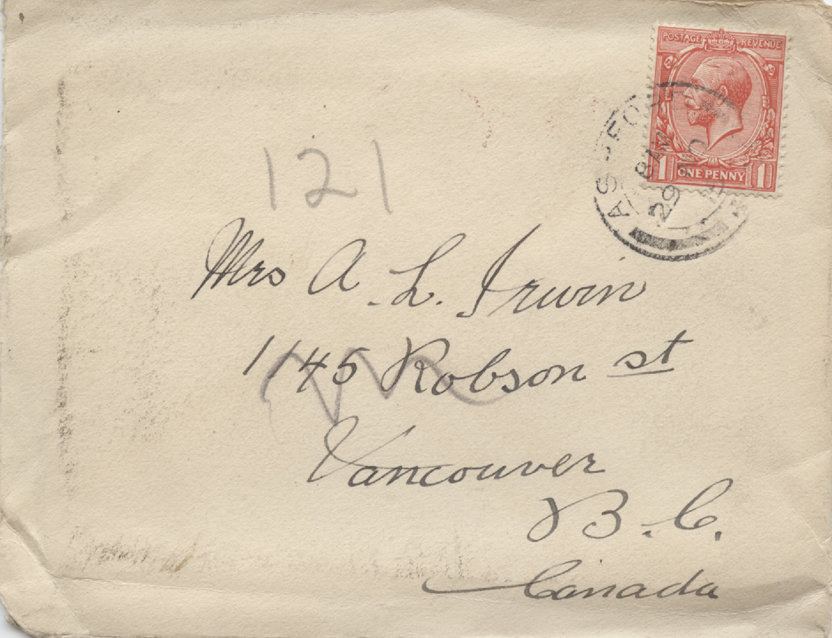 POSTAGE REVENUE
1 ONE PENNY 1
29 NO
121
Mrs A. L. Irwin
1145 Robson st
Vancouver
B.C.
Canada